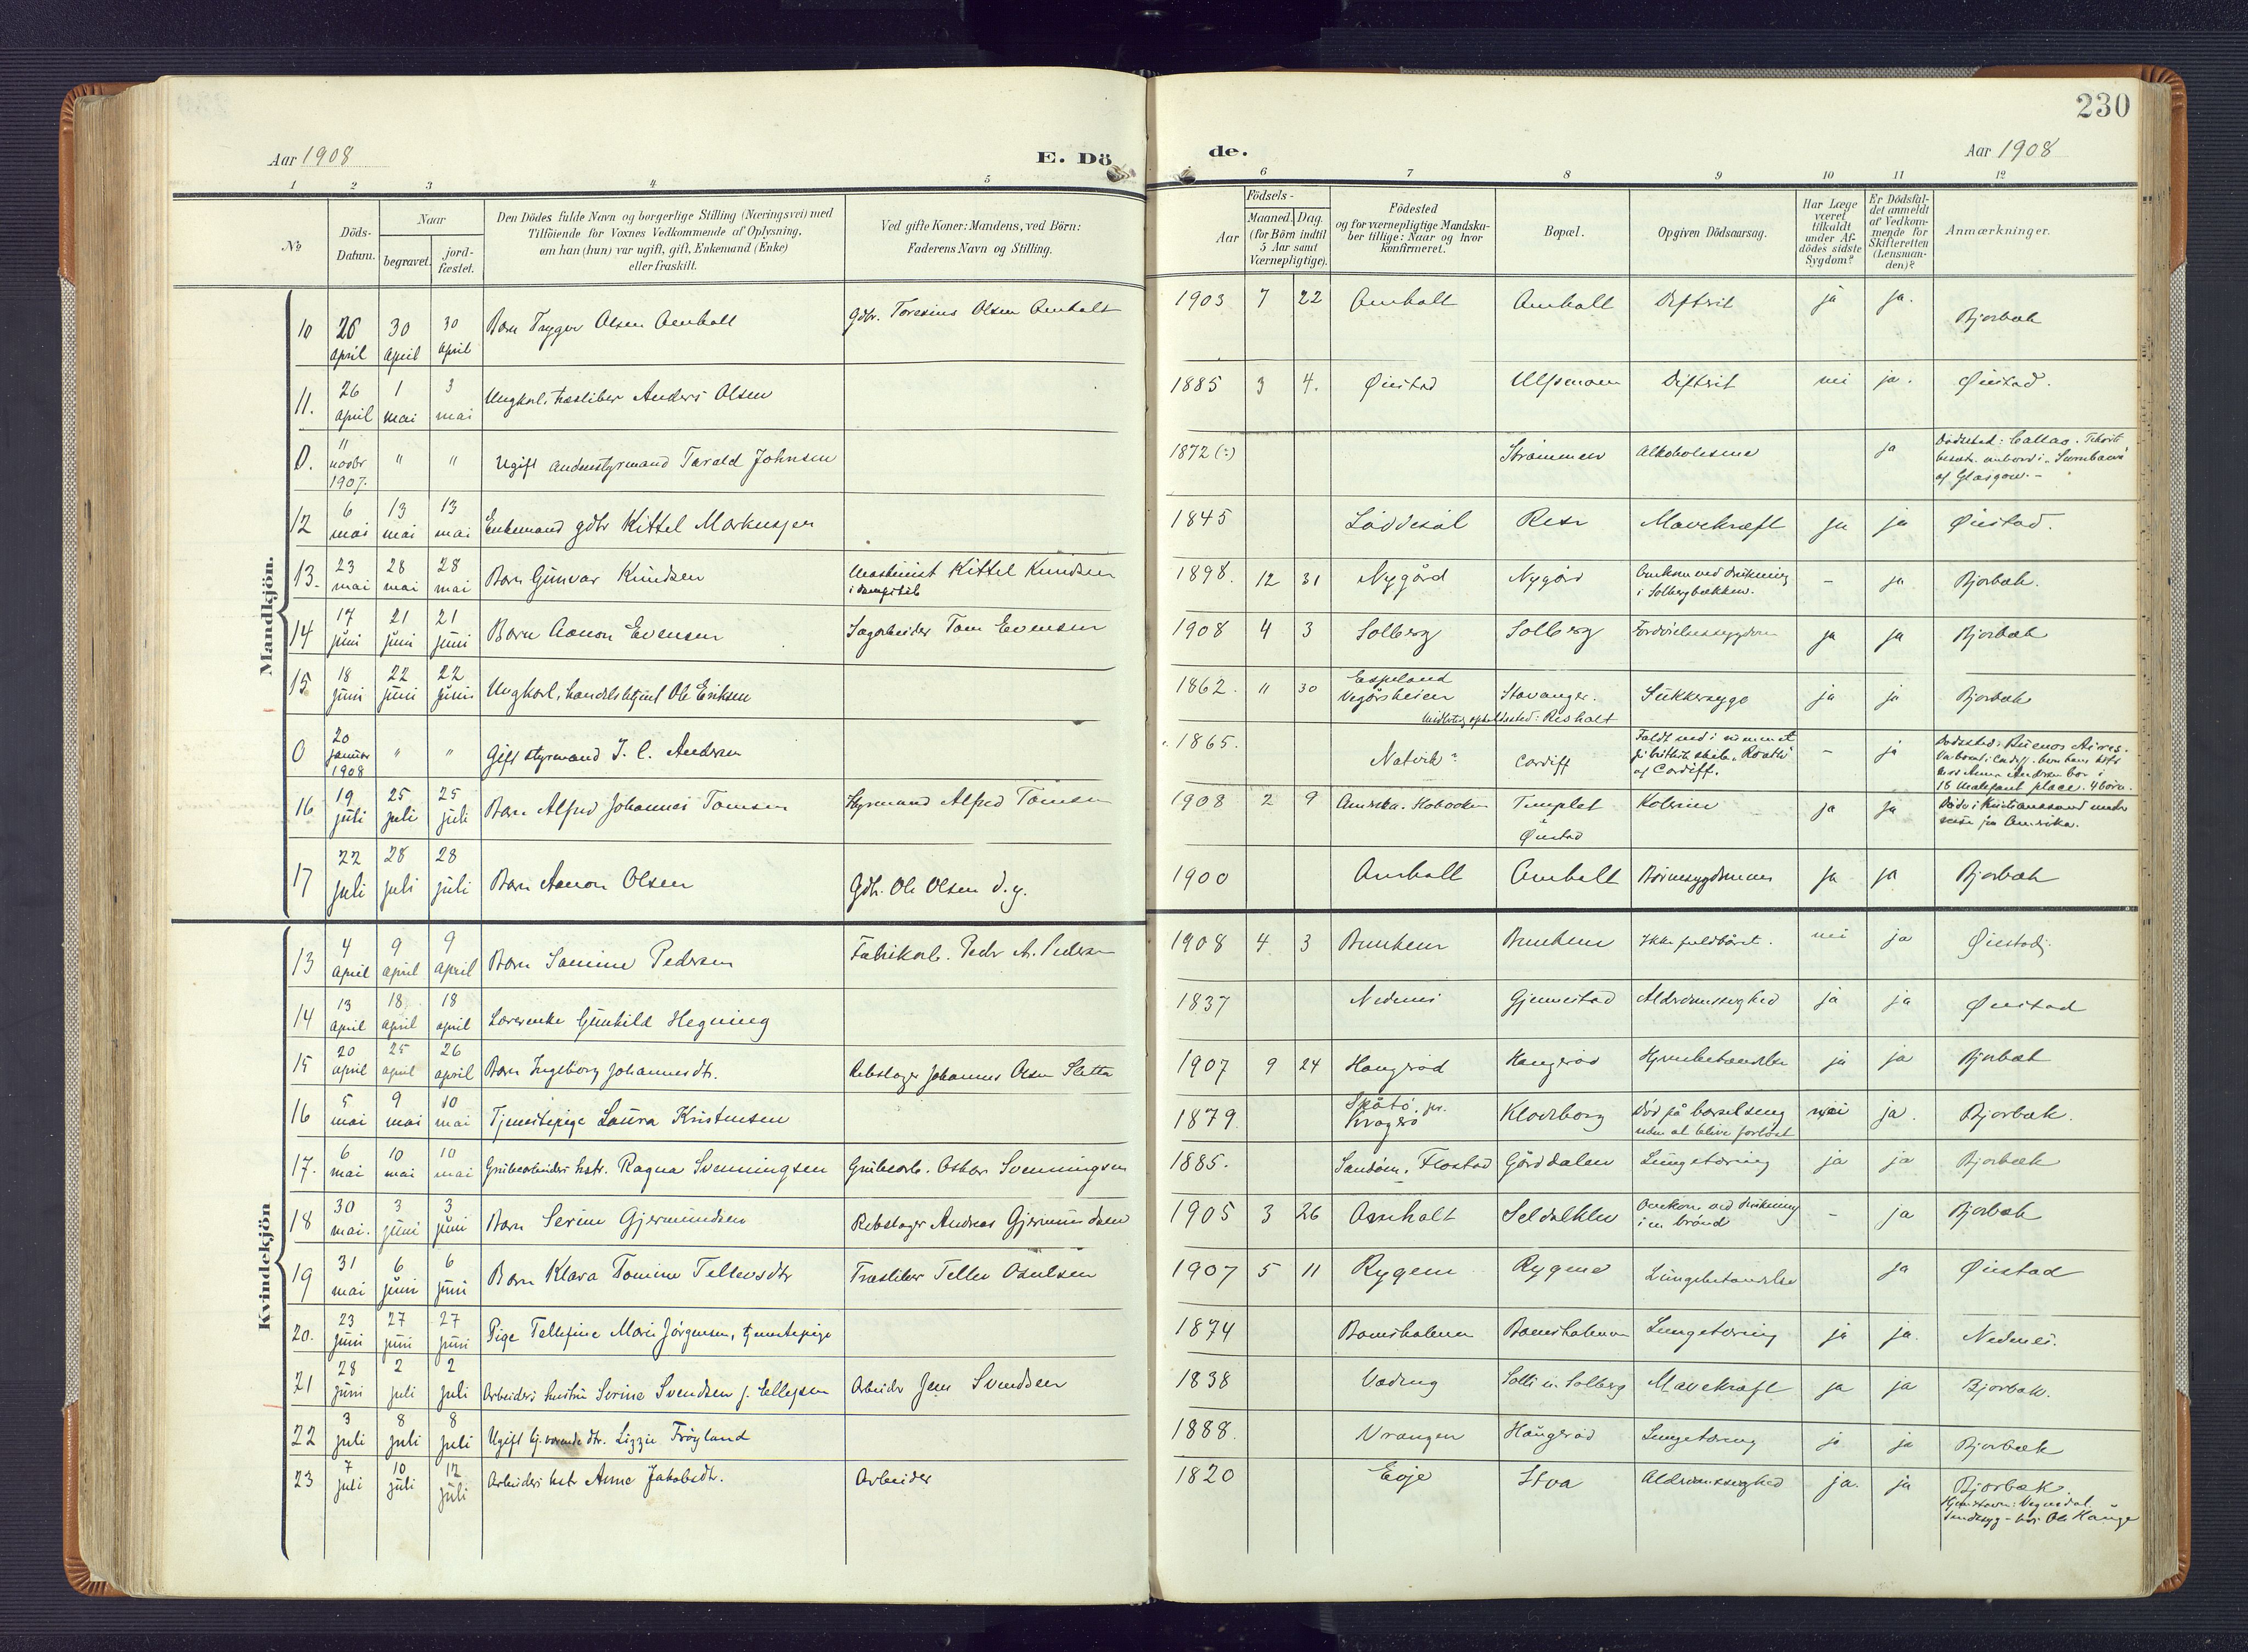 230
Aar 1908 E. Dö de. Aar 1908
1 2 3 4 5 6 7 8 9 10 11 12
No
Döds-Datum.
Naar
begravet.
jord-fæstet.
Den Dödes fulde Navn og borgerlige Stilling (Næringsvei) med
Tilföiende for Voxnes Vedkommende af Oplysning,
om han (hun) var ugift, gift, Enkemand (Enke)
eller fraskilt.
Ved gifte Koner: Mandens, ved Börn:
Faderens Navn og Stilling.
Födsels-
Aar
Maaned. Dag.
(for Börn indtil
5 Aar samt
Værnepligtige).
Födested
og for værnepligtige Mandska-
ber tillige: Naar og hvor
konfirmeret.
Bopæl.
Opgiven Dödsaarsag.
Har Læge
været
tilkaldt
under Af-
dödes sidste
Sygdom?
Er Dödsfal-
det anmeldt
af Vedkom-
mende for
Skifteretten
(Lensman-
den)?
Anmærkninger.
Mandkjön.
10 26 april 30 April 30 april Barn Trygve Olsen Amholt Gdbr. Toresius Olsen Amholt 1903 7 22 Amholt Amholt Diftrit ja ja. Bjorbæk
11. 26 april 1 mai 3 mai Ungkarl, træsliber Anders Olsen 1885 3 4. Øiestad Ulfsmoen Diftrit nei ja. Øiestad.
0. 11 novbr 1907. " " Ugift andenstyrmand Tarald Johnsen 1872 (?) Strømmen Alkoholisme ja Dødssted: Callao.
af Glasgow. -
12 6 mai 13 mai 13 mai Enkemand gdbr Kittel Markussen 1845 Löddesöl Rese Mavekræft ja ja Øiestad.
13. 23 mai 28 mai 28 mai Barn Gunvar Knudsen Maskinist Kittel Knudsen
1898. 12 31 Nygård Nygård Omkom ved drukning
i Solbergbækken. - ja Bjorbæk.
14 17 juni 21 juni 21 juni Barn Aanon Evensen Sagarbeider Tom Evensen 1908 4 3 Solberg Solberg Fordöielsessygdom ja ja Bjorbæk
15 18 juni 22 juni 22 juni Ungkarl, handelsbetjent Ole Eriksen 1862. 11 30 Espeland
Vegårsheien Stavanger. Sukkersyge ja ja Bjorbæk
Midlertidig opholdssted: Risholt
0 20 januar 1908 " " Gift styrmand J. C. Andersen 1865. Natvik? Cardiff Faldt ned i rummet
af Cardiff. - ja Dødssted: Buenos Aires.
16 19 juli 25 juli 25 juli Barn Alfred Johannes Tomsen Styrmand Alfred Tomsen 1908 2 9 Amerika. Hoboken Templet
Øiestad Kolerine ja ja Døde i Kristianssand under
reise fra Amerika.
17 22 juli 28 juli 28 juli Barn Aanon Olsen Gdbr. Ole Olsen d.y. 1900 Amholt Amholt ja ja Bjorbæk
Kvindekjön
13 4 april 9 april 9 april Barn Samine Pedersen Fabrikarb. Peder A. Pedersen 1908 4 3 Ikke fuldbåret. nei ja Øiestad
14 13 april 18 april 18 april Lærerenke Gunhild Hegning 1837 Nedenes Gjennestad Alderdomssvaghed ja ja Øiestad
15 20 april 25 april 26 april Barn Ingeborg Johannesdtr. Rebslager Johannes Olsen Sletta 1907 9 24 Haugerød Haugerød Hjernebetændelse ja ja Bjorbæk
16 5 mai 9 mai 10 mai Tjenestepige Laura Kristensen 1879. Skåtö. pr.
Kragerö Klodeborg Död på barselseng
uden at blive forlöst nei ja. Bjorbæk.
17. 6 mai 10 mai 10 mai Grubearbeiders hstr. Ragna Svenningsen Grubearb. Oskar Svenningsen 1885. Sandöen. Flostad Gårddalen Lungetæring ja ja Bjorbæk
18 30 mai. 3 juni 3 juni Barn Serine Gjermundsen Rebslager Andreas Gjermundsen 1905 3 26 Amholt Seldalklev Omkom ved drukning
i en brönd - ja Bjorbæk
19 31 mai 6 juni 6 juni Barn Klara Tomine Tellevsdtr Træsliber Tellev Osulsen 1907 5 11 Rygene Rygene Lungebetændelse ja Øiestad
20. 23 juni 27 juni 27 juni Pige Tellefine Marie Jörgensen, tjenestepige 1874 Bomsholmen Bomsholmen Lungetæring ja ja. Nedenes.
21 28 juni 2 juli 2 juli Arbeiders hustru Serine Svendsen f. Ellefsen Arbeider Jens Svendsen 1838 Vading Solli u. Solberg Mavekræft ja ja Bjorbæk.
22 3 juli 8 juli 8 juli Ugift hj.værende dtr. Lizzie Fröyland 1888. Vrangen Haugeröd Lungetæring ja ja Bjorbæk
23 7 juli 10 juli 12 juli Arbeiders hstr Anne Jakobsdtr. Arbeider 1820 Evje Stva Alderdomssvaghed ja. ja Bjorbæk.
Sindssyg - hos Ole Hauge